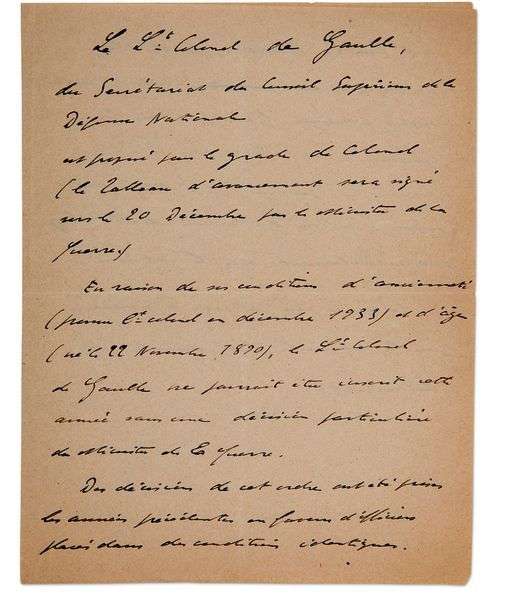 Le Lt Colonel de Gaulle,
du Secrétariat du Conseil Supérieur de la
Défense Nationale
est proposé pour le grade de Colonel
(le Tableau d'avancement sera signé
vers le 20 Décembre par le Ministre de la
Guerre.)
En raison de ses conditions d'ancienneté
(promu Lt colonel en décembre 1933) et d'âge
(né le 22 Novembre 1890), le Lt Colonel
de Gaulle ne pourrait être inscrit cette
année sans une décision particulière
du Ministre de la Guerre.
Des décisions de cet ordre ont été prises
les années précédentes en faveur d'officiers
placés dans des conditions identiques.